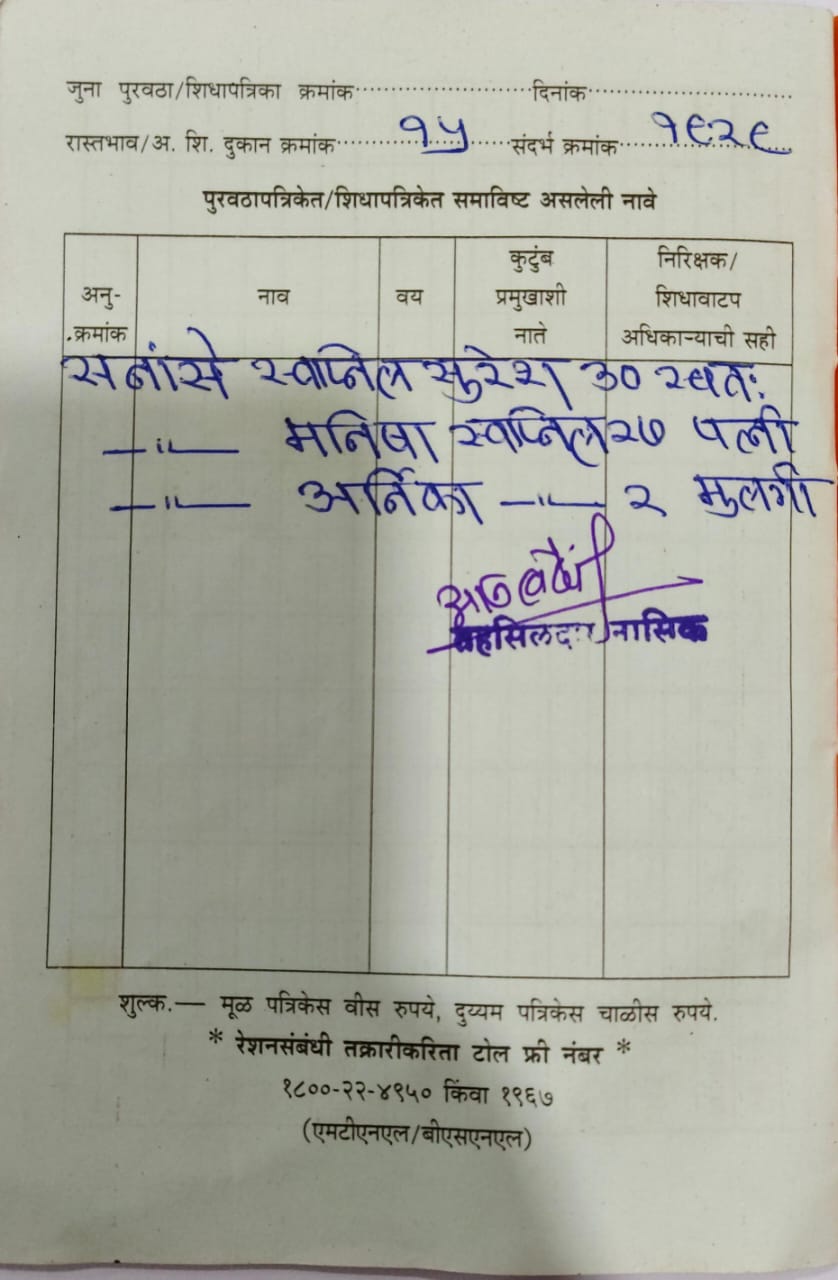 जुना पुरवठा/शिधापत्रिका क्रमांक..............................दिनांक..............................
रास्तभाव/अ. शि. दुकान क्रमांक.......१५.......संदर्भ क्रमांक....१९२९....
पुरवठापत्रिकेत/शिधापत्रिकेत समाविष्ट असलेली नावे
अनु-क्रमांक नाव वय कुटुंब प्रमुखाशी नाते निरिक्षक/शिधावाटप अधिकाऱ्याची सही
सनांसे स्वाप्निल सुरेश ३० स्वतः
—"— मनिषा स्वाप्निल २७ पत्नी
—"— अर्निका —"— २ मुलगी
तहसिलदार नासिक
शुल्क.— मूळ पत्रिकेस वीस रुपये, दुय्यम पत्रिकेस चाळीस रुपये.
* रेशनसंबंधी तक्रारीकरिता टोल फ्री नंबर *
१८००-२२-४९५० किंवा १९६७
(एमटीएनएल/बीएसएनएल)